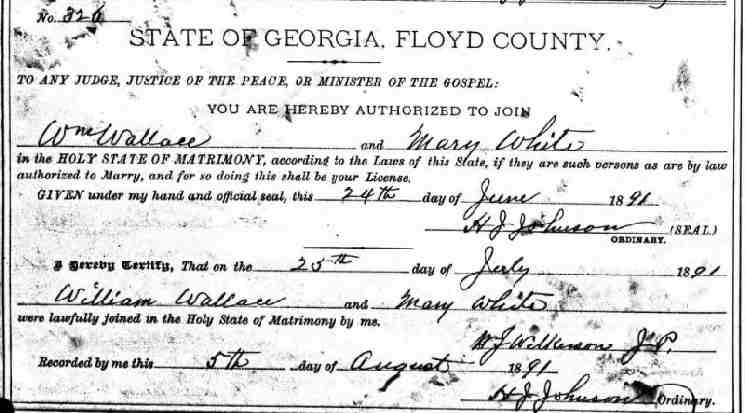 No. 326
STATE OF GEORGIA, FLOYD COUNTY.
TO ANY JUDGE, JUSTICE OF THE PEACE, OR MINISTER OF THE GOSPEL:
YOU ARE HEREBY AUTHORIZED TO JOIN
Wm Wallace and Mary White
in the HOLY STATE OF MATRIMONY, according to the Laws of this State, if they are such persons as are by law
authorized to Marry, and for so doing this shall be your License.
GIVEN under my hand and official seal, this 24th day of June 1891
H J Johnson (SEAL)
ORDINARY.
I Hereby Certify, That on the 25th day of July 1891
William Wallace and Mary White
were lawfully joined in the Holy State of Matrimony by me.
W J Wilkerson J.P.
Recorded by me this 5th day of August 1891
H J Johnson Ordinary.